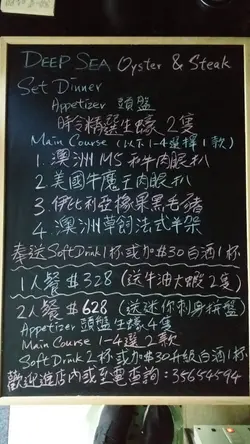 DEEP SEA Oyster & Steak
Set Dinner
Appetizer 頭盤
時令精選生蠔2隻
Main Course (以下1-4選擇1款)
1. 澳洲M5和牛肉眼扒
2. 美國牛魔王肉眼扒
3. 伊比利亞橡果黑毛豬
4. 澳洲草飼法式羊架
奉送Soft Drink 1杯或加$30白酒1杯
1人餐 $328 (送牛油大蝦2隻)
2人餐 $628 (送迷你刺身拼盤)
Appetizer 頭盤生蠔4隻
Main Course 1-4選2款
Soft Drink 2杯或加$30升級白酒1杯
歡迎進店內或至電查詢:35654594